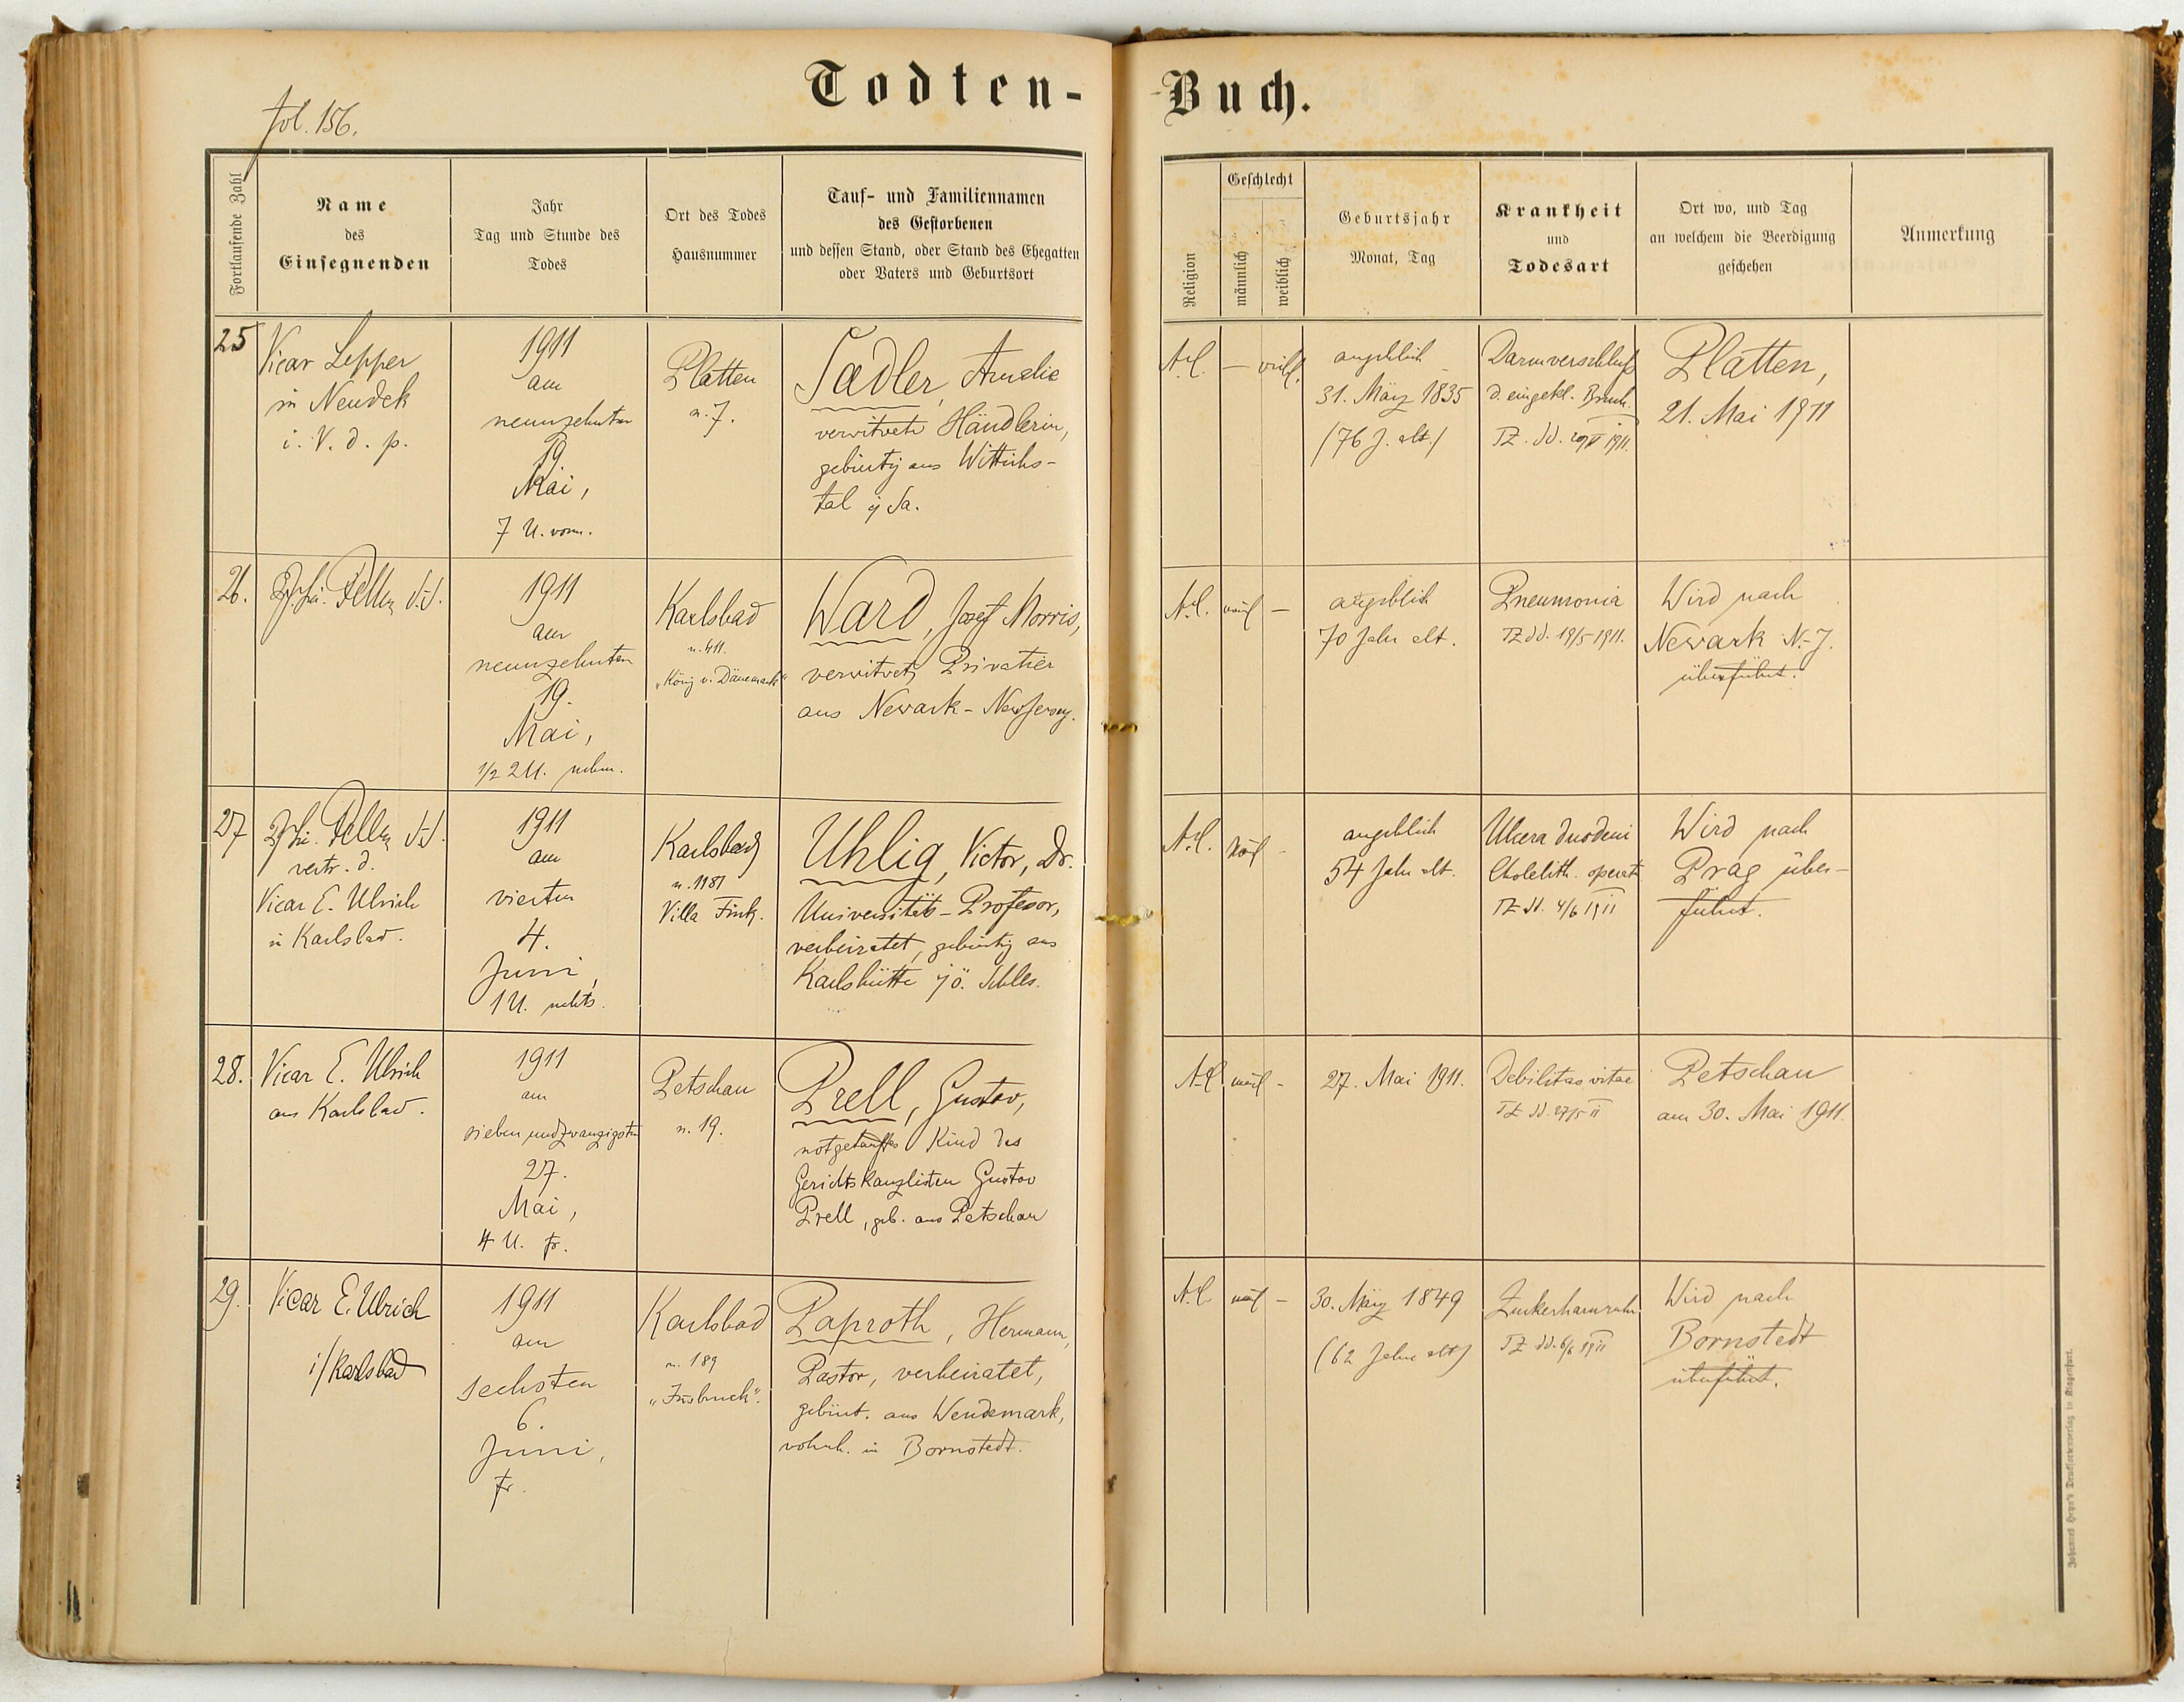 Todten-Buch.
fol. 156.
Fortlaufende Zahl
Name
des
Einsegnenden
Jahr
Tag und Stunde des
Todes
Ort des Todes
Hausnummer
Tauf- und Familiennamen
des Gestorbenen
und dessen Stand, oder Stand des Ehegatten
oder Vaters und Geburtsort
Religion
Geschlecht
männlich
weiblich
Geburtsjahr
Monat, Tag
Krankheit
und
Todesart
Ort wo, und Tag
an welchem die Beerdigung
geschehen
Anmerkung
25
Vicar Lepper
in Neudek
i. V. d. p.
1911
am
neunzehnten
19
Mai,
7 U. vorm.
Platten
n. 7.
Sadler, Amelie
verwitwete Händlerin,
gebürtig aus Wittichs-
tal i/Sa.
A.C.
—
weibl.
angeblich
31. März 1835
(76 J. alt.)
Darmverschluß
d. eingekl. Bruch.
TZ. dd. 1911.
Platten,
21. Mai 1911
26.
1911
am
neunzehnten
19.
Mai,
1/2 2 U. nchm.
Karlsbad
n. 411.
„König v. Dänemark"
Ward, Josef Morris,
verwitwet, Privatier
aus Newark - New Jersey.
A.C.
—
angeblich
70 Jahre alt.
Pneumonia
TZ dd. 19/5 1911.
Wird nach
Newark N.-J.
überführt.
27
vertr. d.
Vicar E. Ulrich
in Karlsbad.
1911
am
vierten
4.
Juni,
1 U. nachts.
Karlsbad
n. 1181
Villa Fink.
Uhlig, Victor, Dr.
Universitäts-Professor,
verheiratet, gebürtig aus
Karlshütte i/ö. Schles.
A.C.
-
angeblich
54 Jahre alt.
Ulcera duodeni
Cholelith. operat.
TZ dd. 4/6 1911
Wird nach
Prag über-
führt.
28.
Vicar E. Ulrich
aus Karlsbad.
1911
am
siebenundzwanzigsten
27.
Mai,
4 U. fr.
Petschau
n. 19.
Prell, Gustav,
notgetauftes Kind des
Gerichtskanzlisten Gustav
Prell, geb. aus Petschau
A.C.
-
27. Mai 1911.
Debilitas vitae
TZ dd. 27/5 11
Petschau
am 30. Mai 1911.
29.
Vicar E. Ulrich
i/Karlsbad
1911
am
sechsten
6.
Juni,
fr.
Karlsbad
n. 189
„Insbruck".
Paproth, Hermann,
Pastor, verheiratet,
gebürt. aus Wendemark,
wohnh. in Bornstedt.
A.C.
-
30. März 1849
(62 Jahre alt)
Zuckerharnruhr
TZ dd. 6/6 1911
Wird nach
Bornstedt
überführt.
Johannes Heyn's Drucksortenverlag in Klagenfurt.